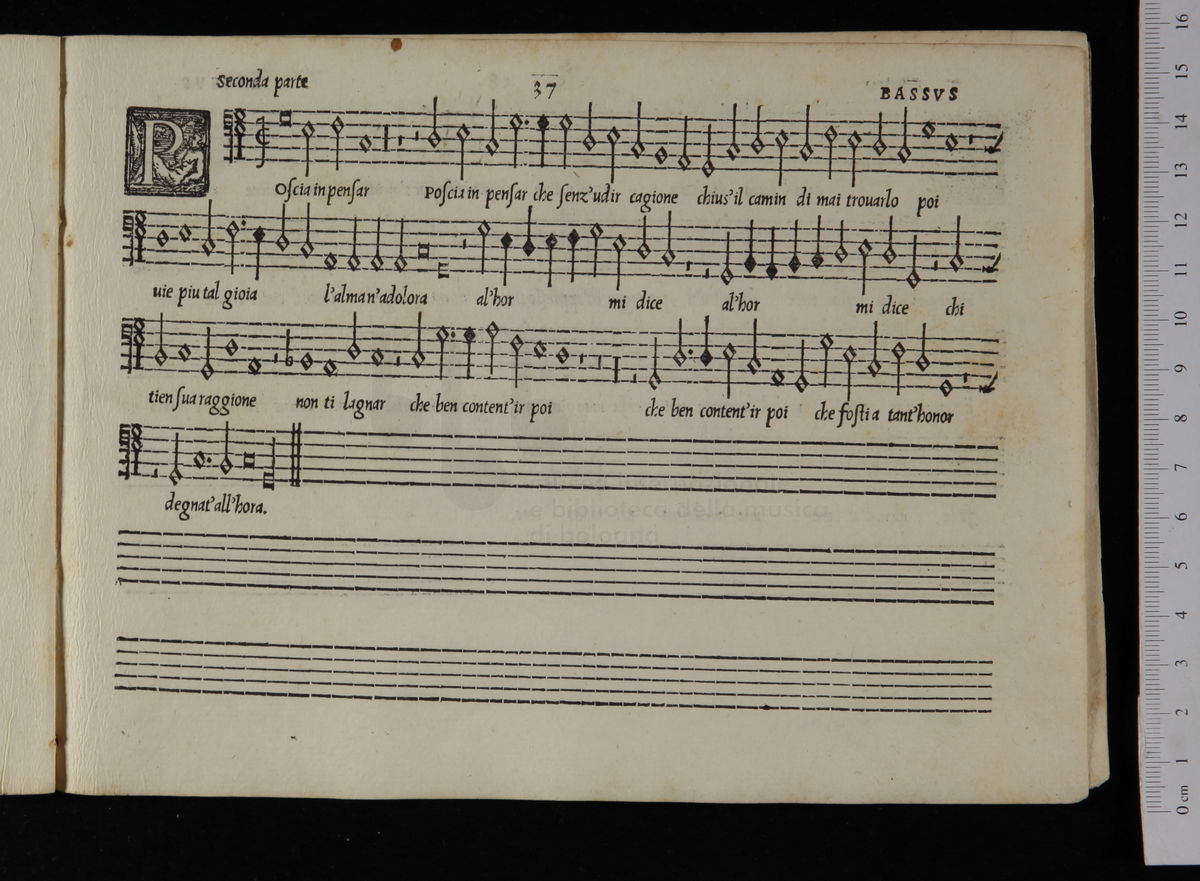 Seconda parte
37
BASSVS
R
Oſcia in penſar Poſcia in penſar che ſenz'udir cagione chius'il camin di mai trouarlo poi
uie piu tal gioia l'alma n'adolora al'hor mi dice al'hor mi dice chi
tien ſua raggione non ti lagnar che ben content'ir poi che ben content'ir poi che foſti a tant'honor
degnat'all'hora.
e biblioteca della musica
di bologna
16
15
14
13
12
11
10
9
8
7
6
5
4
3
2
1
0 cm